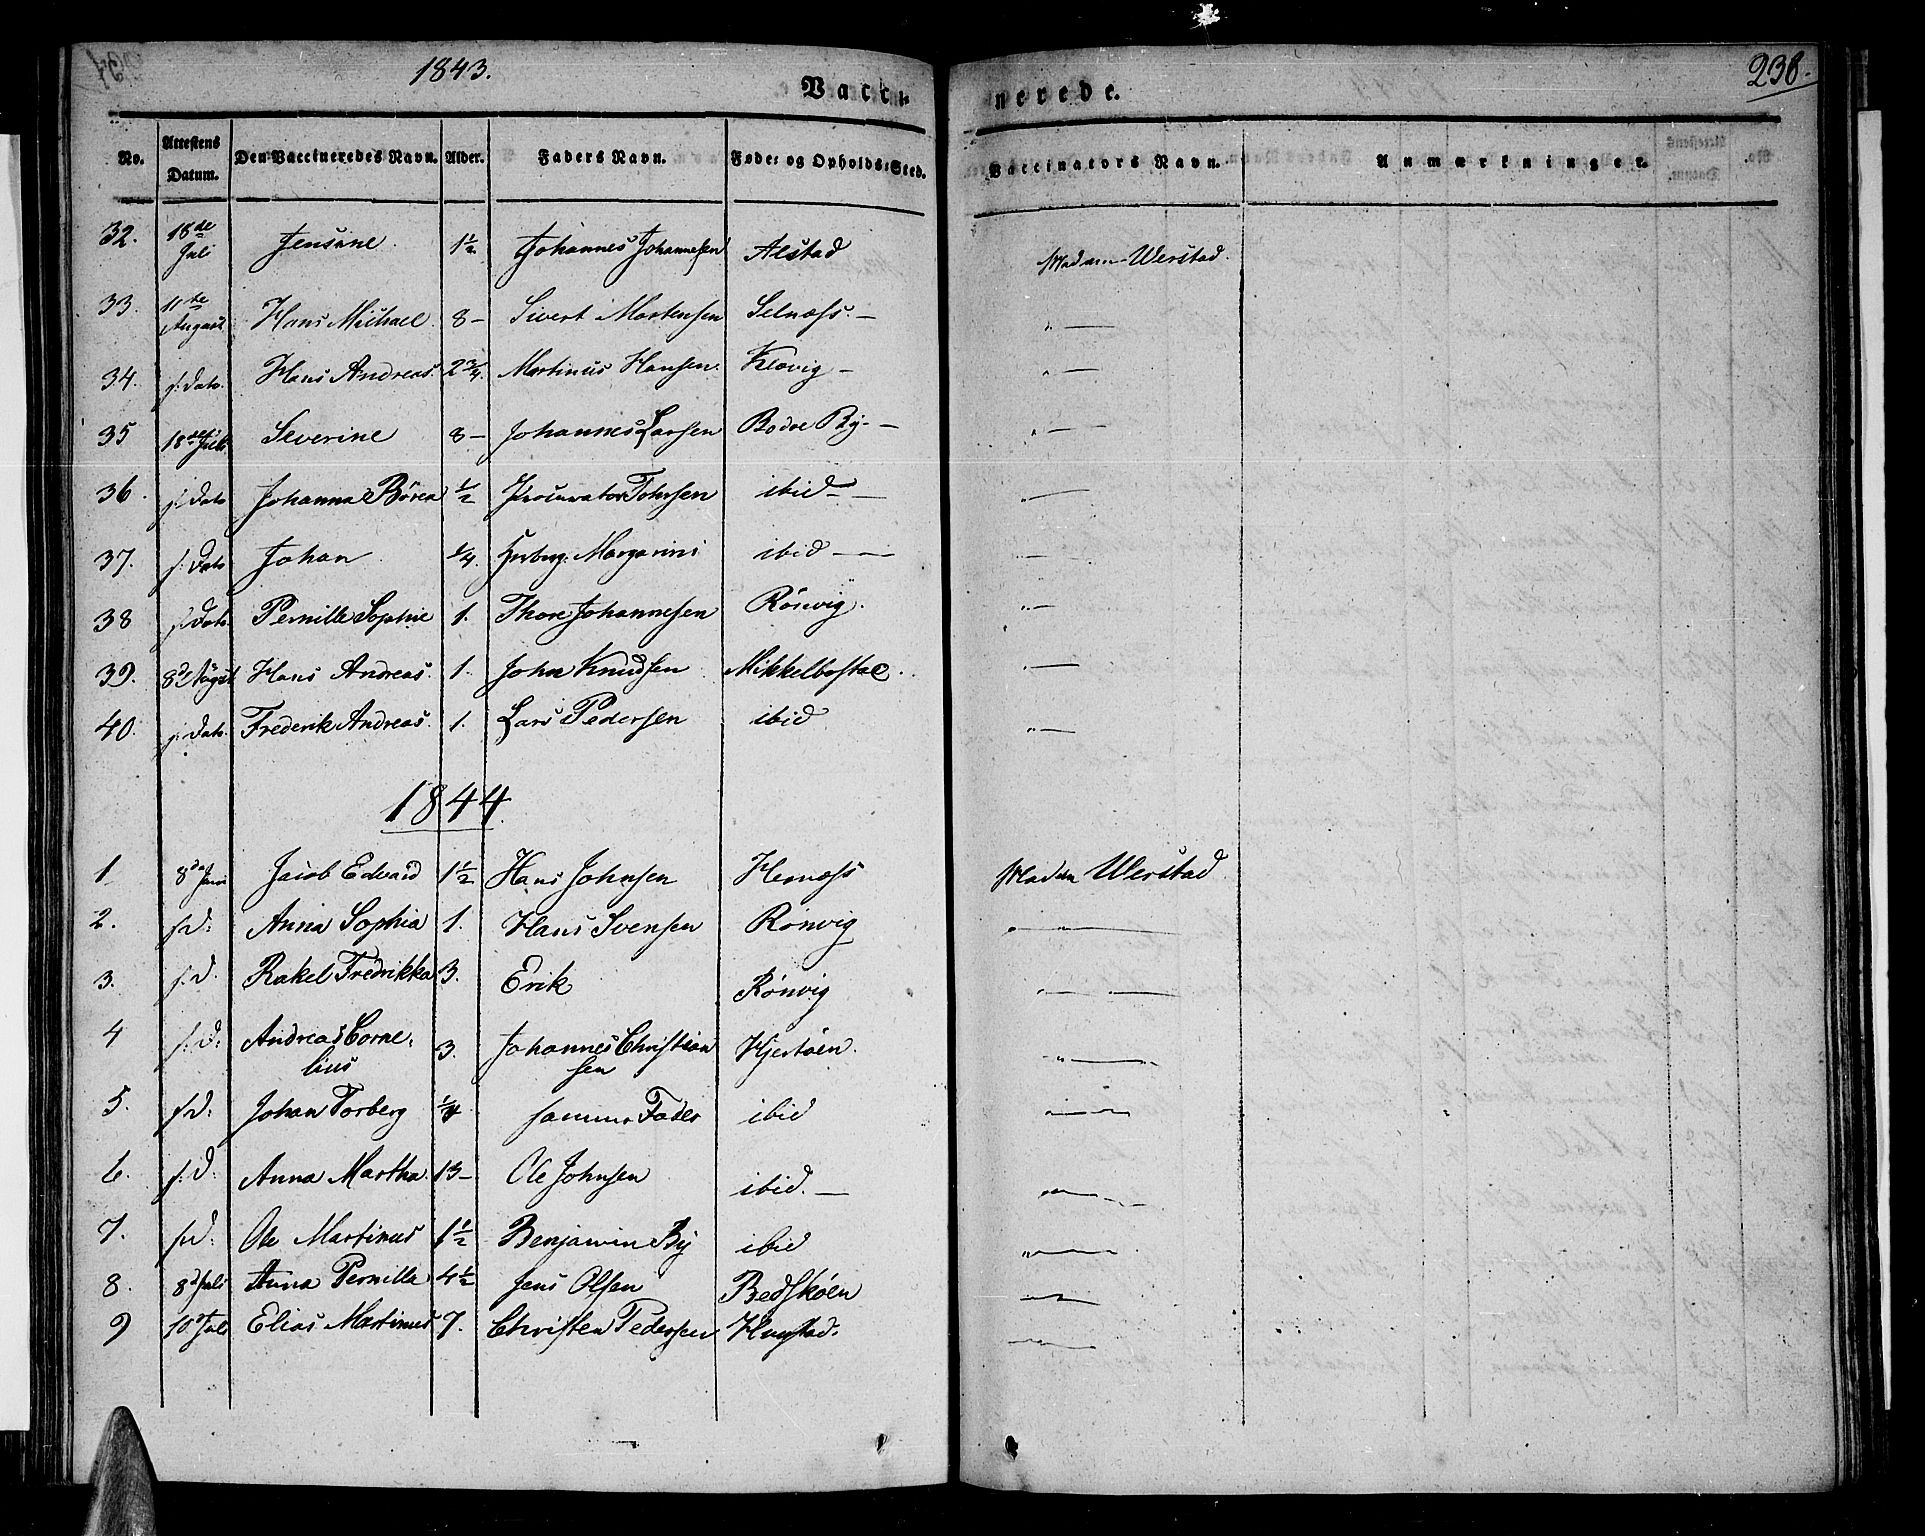 1843.
238.
Vacci-
nerede.
No.
Attestens Datum.
Den Vaccineredes Navn.
Alder.
Faders Navn.
Føde- og Opholds-Sted.
Vaccinators Navn.
Anmærkninger.
32. 18de Juli Jensine 1½ Johannes Johannessen Alstad Madam Werstad.
33. 11te August Hans Michael 8 – Sivert Mortensen Selnæss. – " —
34. s. Dato. Hans Andreas. 2¾ Martinus Hansen Kløvig – " —
35 18de Juli Severine 8 – Johannes Larsen Bodøe By. – " —
36. s. Dato Johanna Børea ½ Procurator Tohrsen ibid – "
37. s. Dato Johan ¼ Margarini ibid – "
38 s. Dato. Pernille Sophie 1. Thore Johannesen Rönvig. " —
39. 8de August Hans Andreas. 1. John Knudsen Mikkelbostad. " —
40. s. Dato. Frederik Andreas. 1. Lars Pedersen ibid " —
1844.
1 8de Juni Jacob Edvard 1½ Hans Johnsen Hernæss Madam Werstad
2. s. d. Anna Sophia 1. Hans Svensen Rönvig "
3. s. d. Rakel Fredrikka 3. Erik Rönvig "
4 s. d. Andreas Corne- 3. Johannes Christian Hjertöen. "
lius sen
5. s. d. Johan Torberg ¼ samme Fader ibid "
6. s. d. Anna Martha. 13 – Ole Johnsen ibid. – "
7. s. d. Ole Martinus 1½ Benjamin By ibid "
8. 8d Juli Anna Pernilla 4½ Jens Olsen Bedsköen "
9 10d Juli Elias Martinus 7. Christen Pedersen "